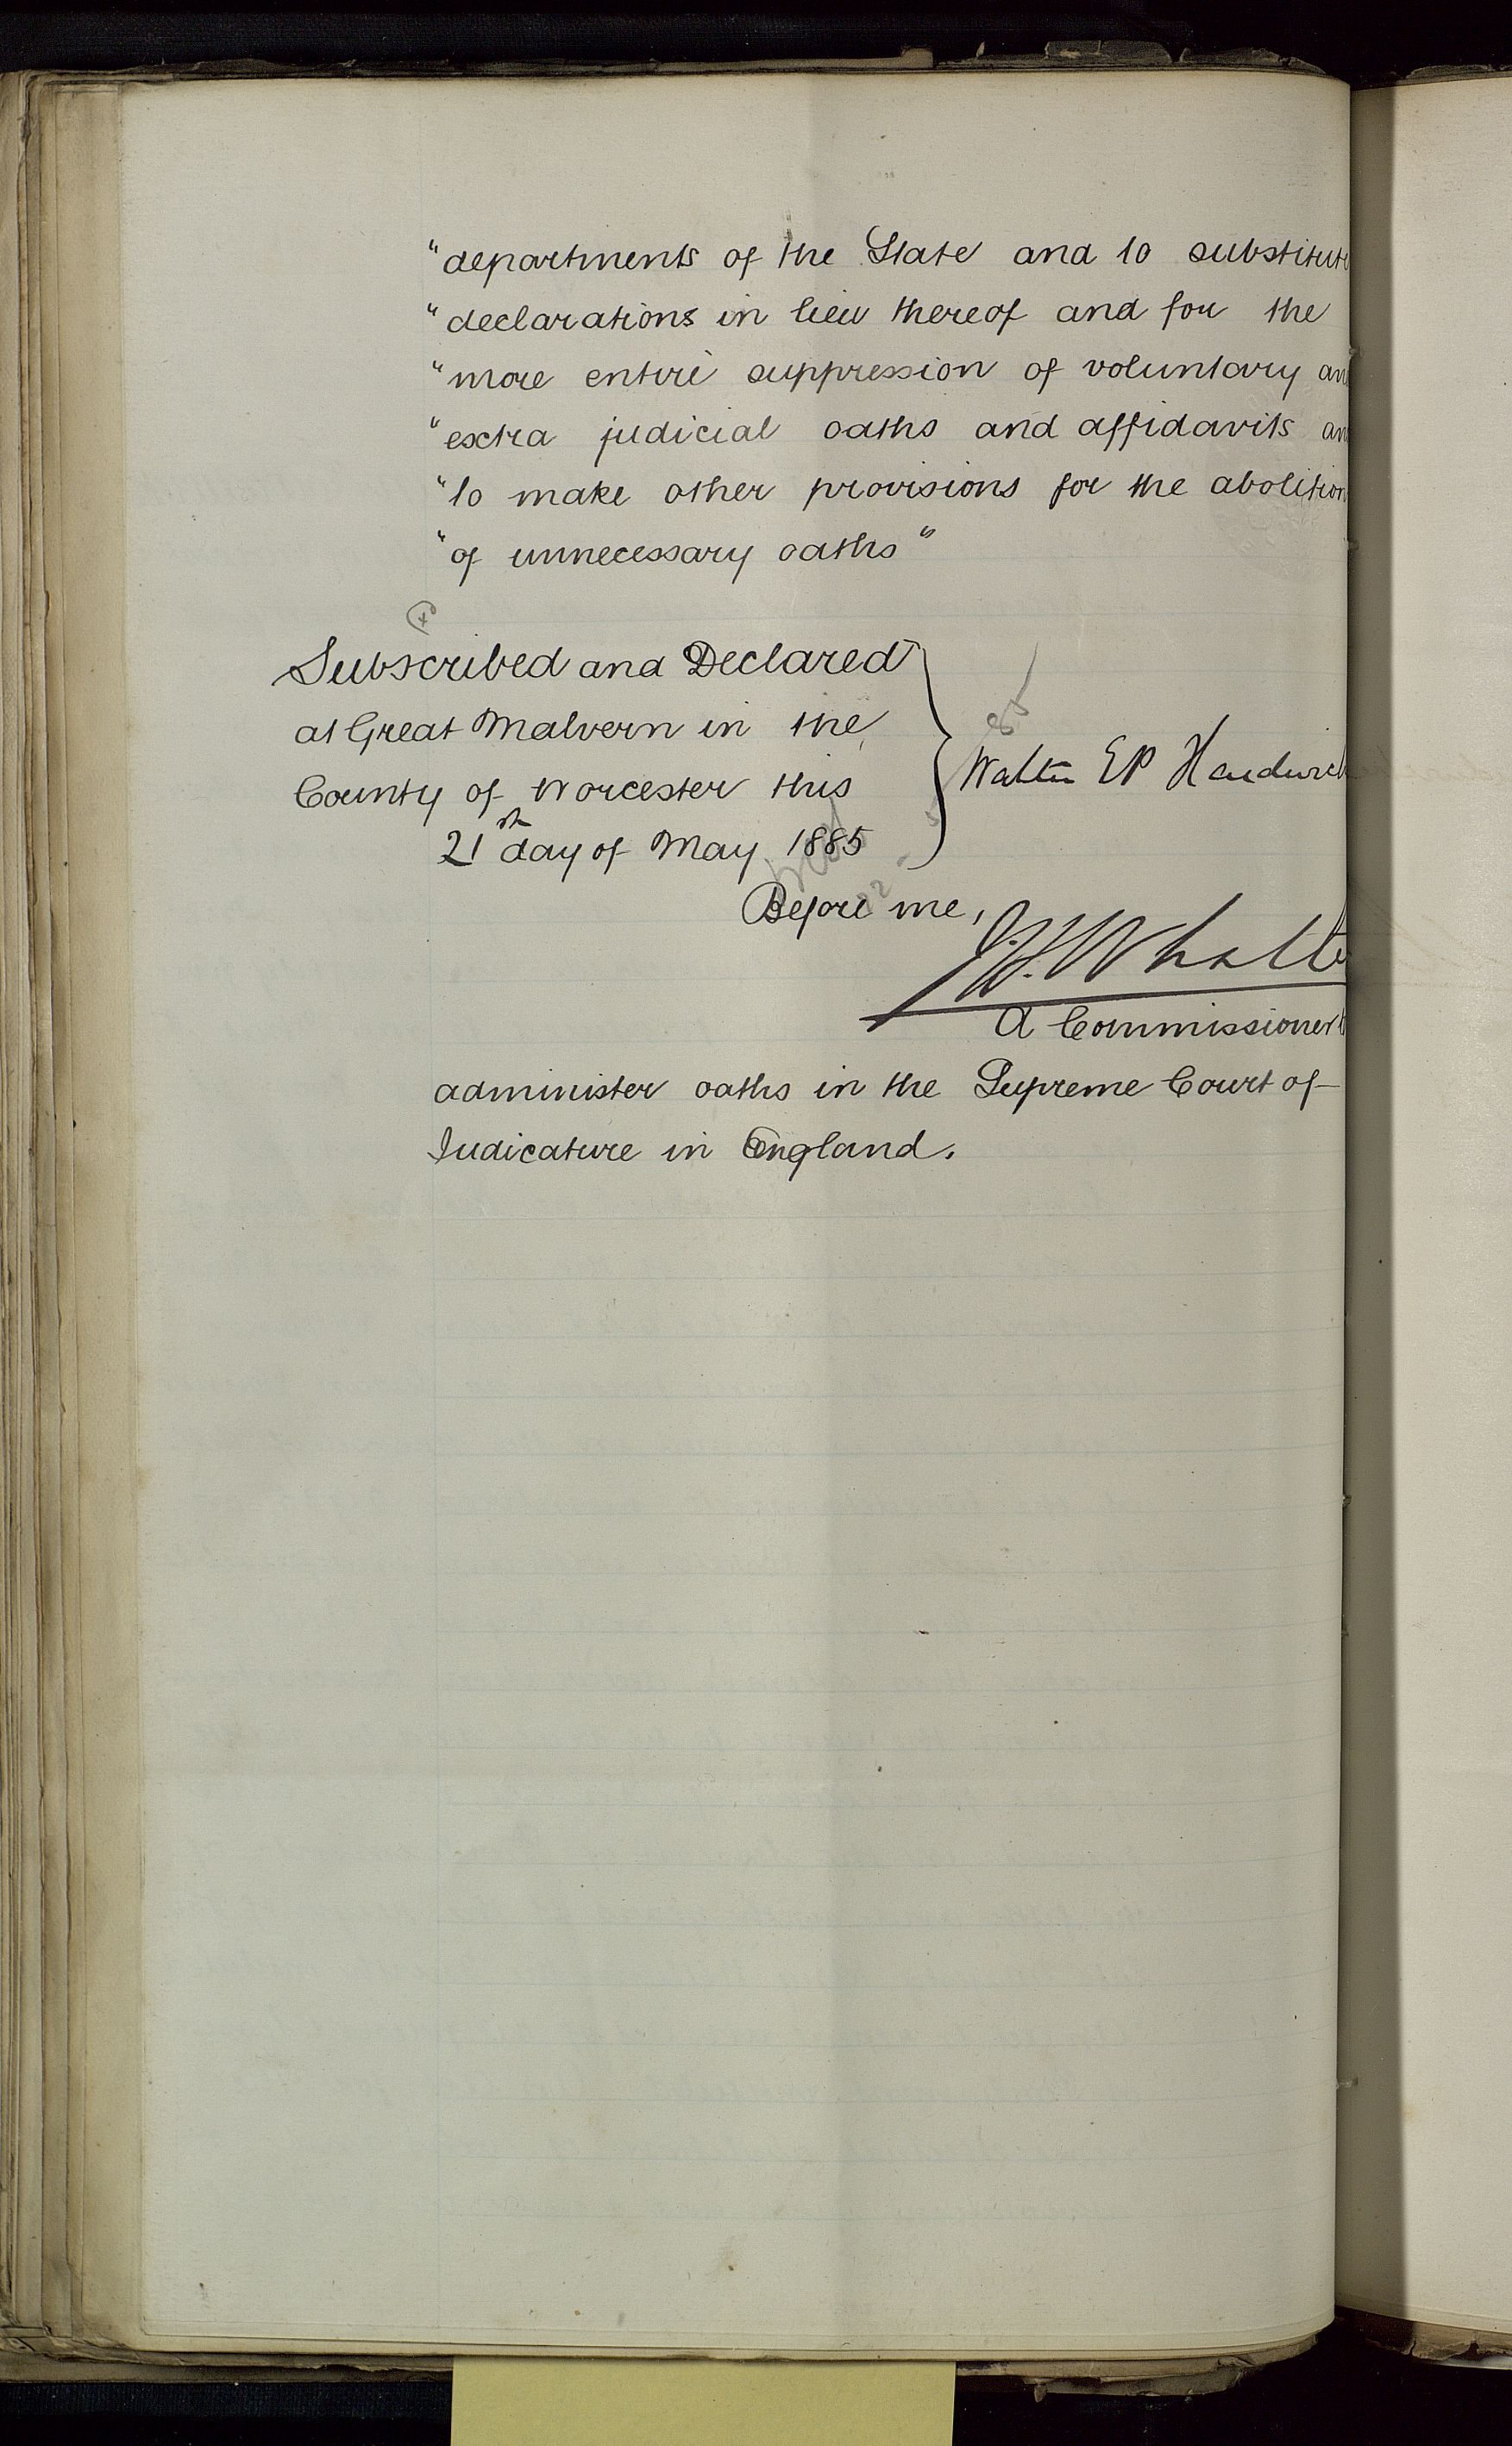 "departments of the State and to substitute
"declarations in lieu thereof and for the
"more entire suppression of voluntary an
"extra judicial oaths and affidavits an
"to make other provisions for the abolition
"of unnecessary oaths"
Subscribed and Declared
at Great Malvern in the
County of Worcester this
21st day of May 1885
Walter EP Hardwick
Before me,
A Commissioner
administer oaths in the Supreme Court of
Judicature in England.